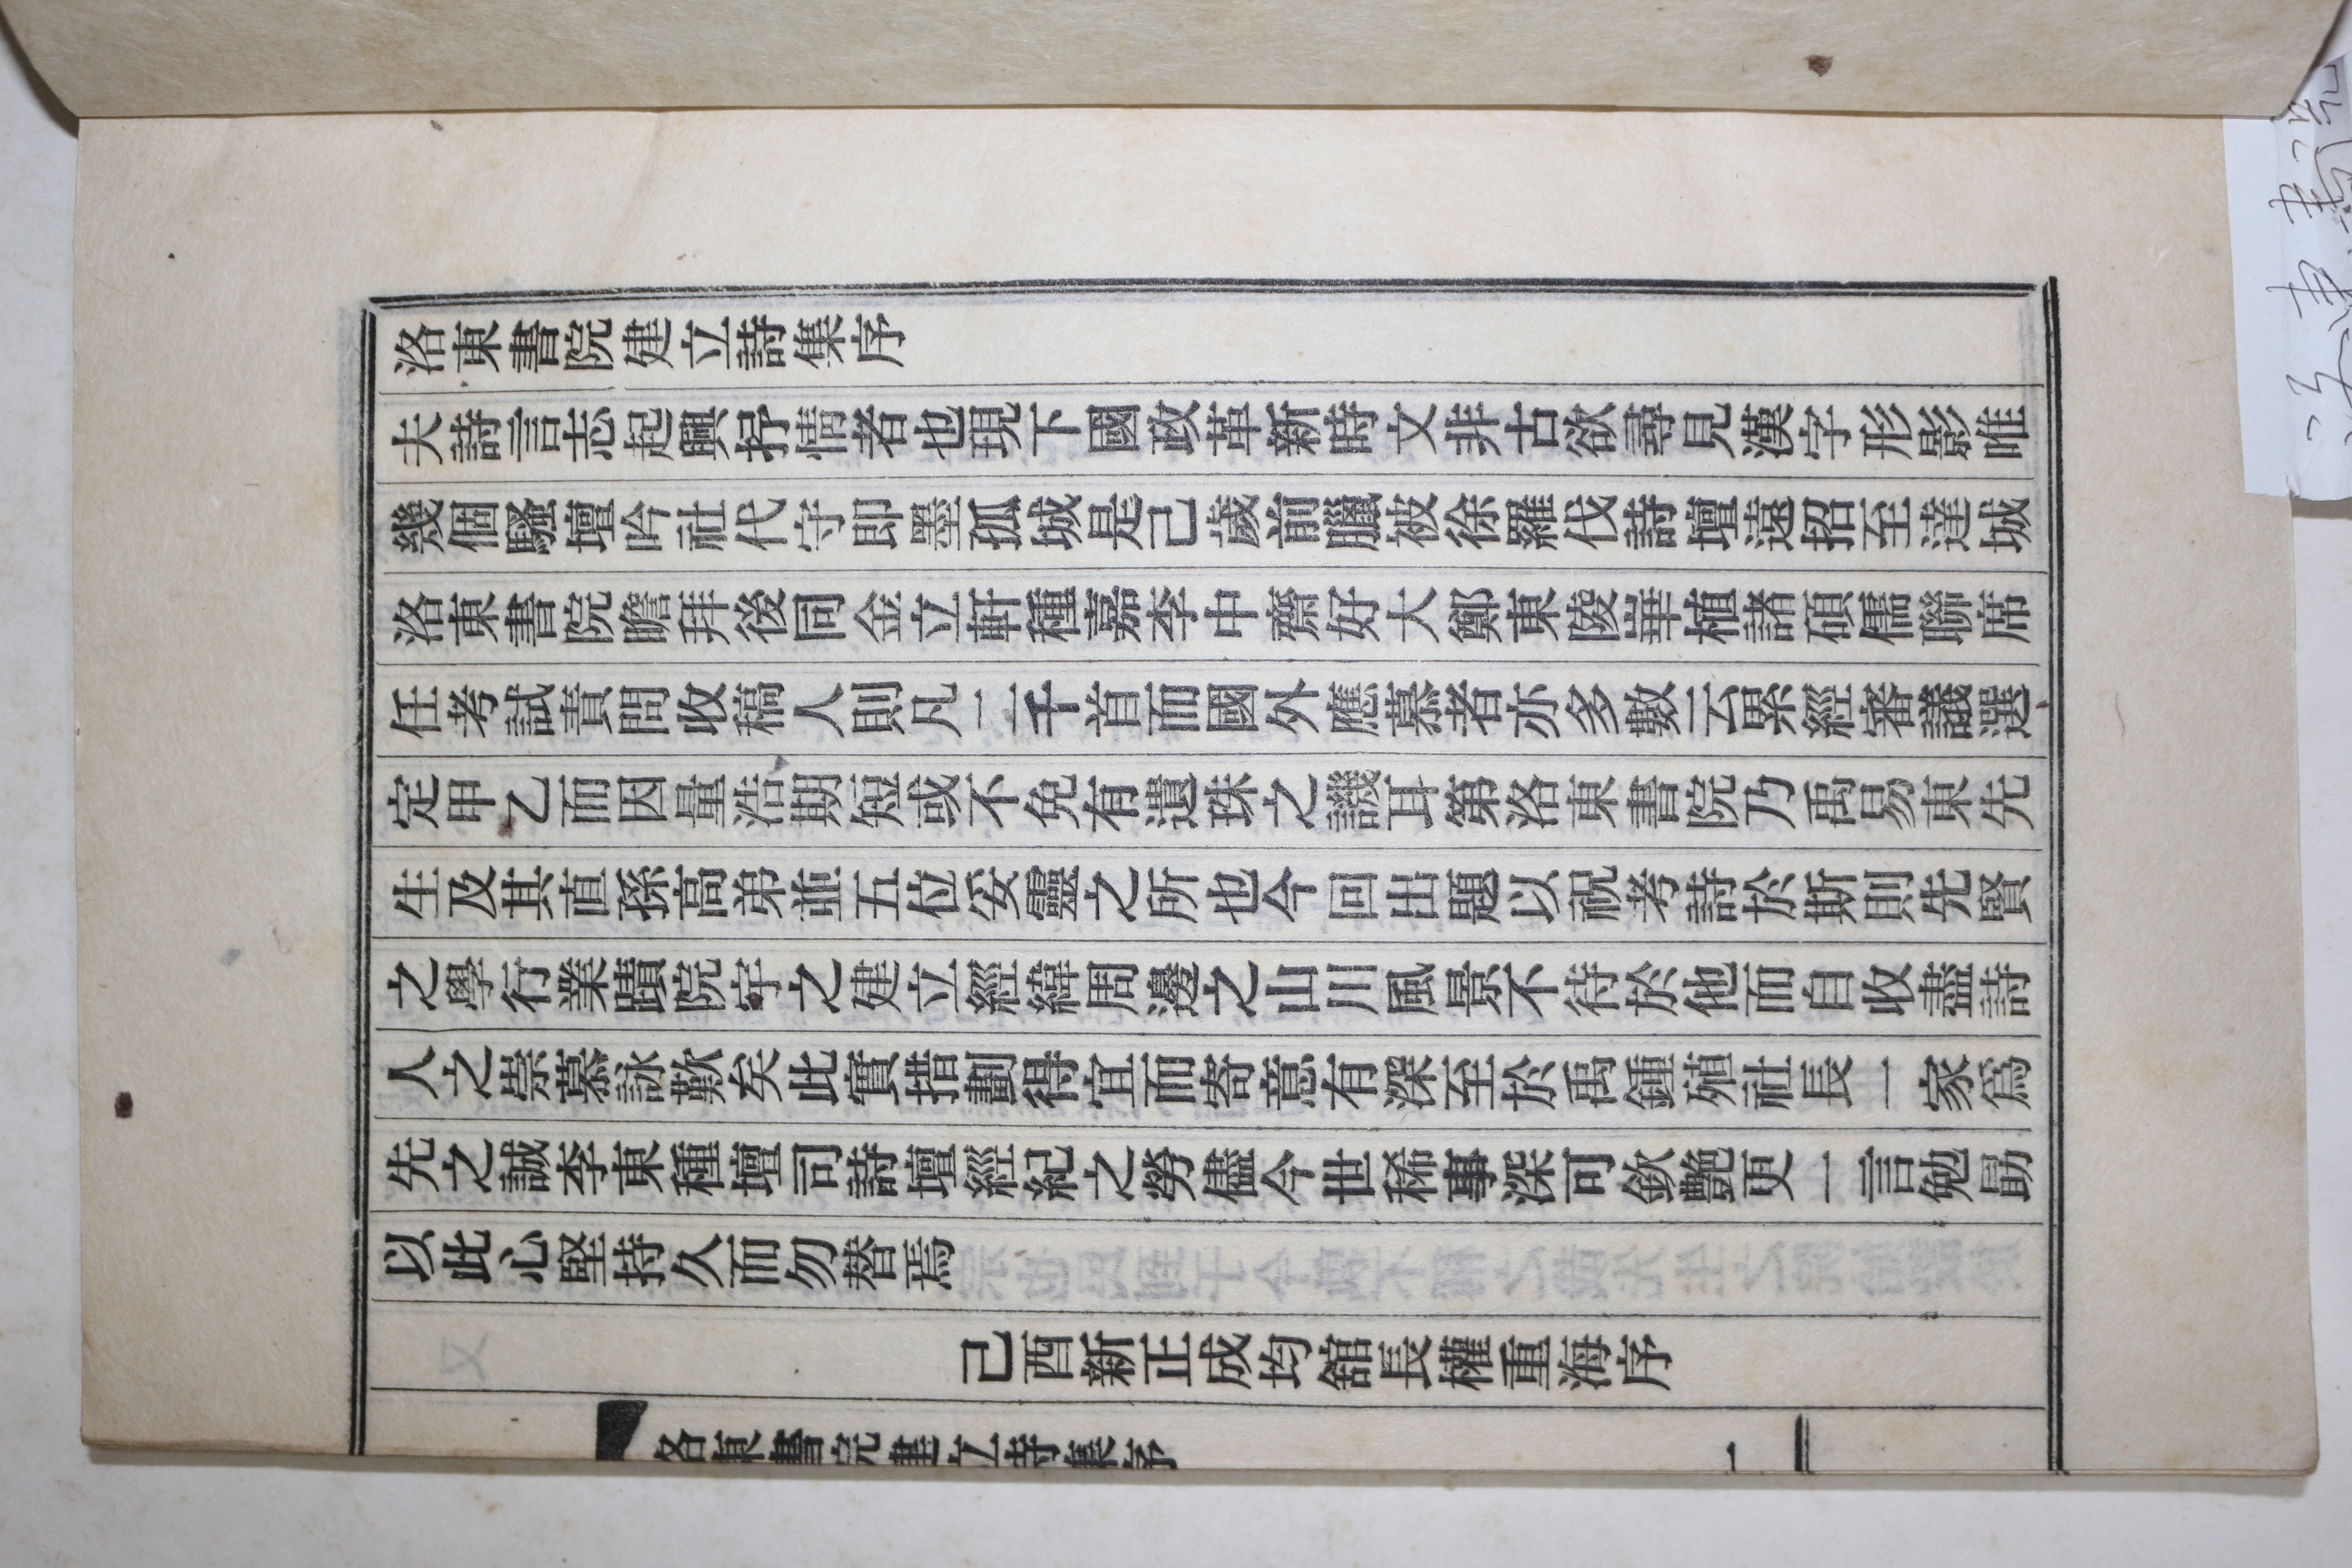 洛東書院建立詩集序
夫詩言志起興抒情者也現下國政革新時文非古欲尋見漢字形影唯
幾個騷壇吟社代守即墨孤城是己歲前臘被徐羅伐詩壇遠招至達城
洛東書院瞻拜後同金立軒種嘉李中齋好大鄭東陵崋植諸碩儒聯席
任考試責問收稿人則凡二千首而國外應慕者亦多數云累經審議選
定甲乙而因量浩期短或不免有遺珠之譏耳第洛東書院乃禹易東先
生及其直孫高弟並五位妥靈之所也今回出題以祝考詩於斯則先賢
之學行業蹟院宇之建立經緯周邊之山川風景不待於他而自收盡詩
人之崇慕詠歎矣此實措劃得宜而寄意有深至於禹鍾殖社長一家爲
先之誠李東種壇司詩壇經紀之勞儘今世稀事深可欽艷更一言勉勗
以此心堅持久而勿替焉
己酉新正成均舘長權重海序
洛東書院建立詩集序
一
洛東書院